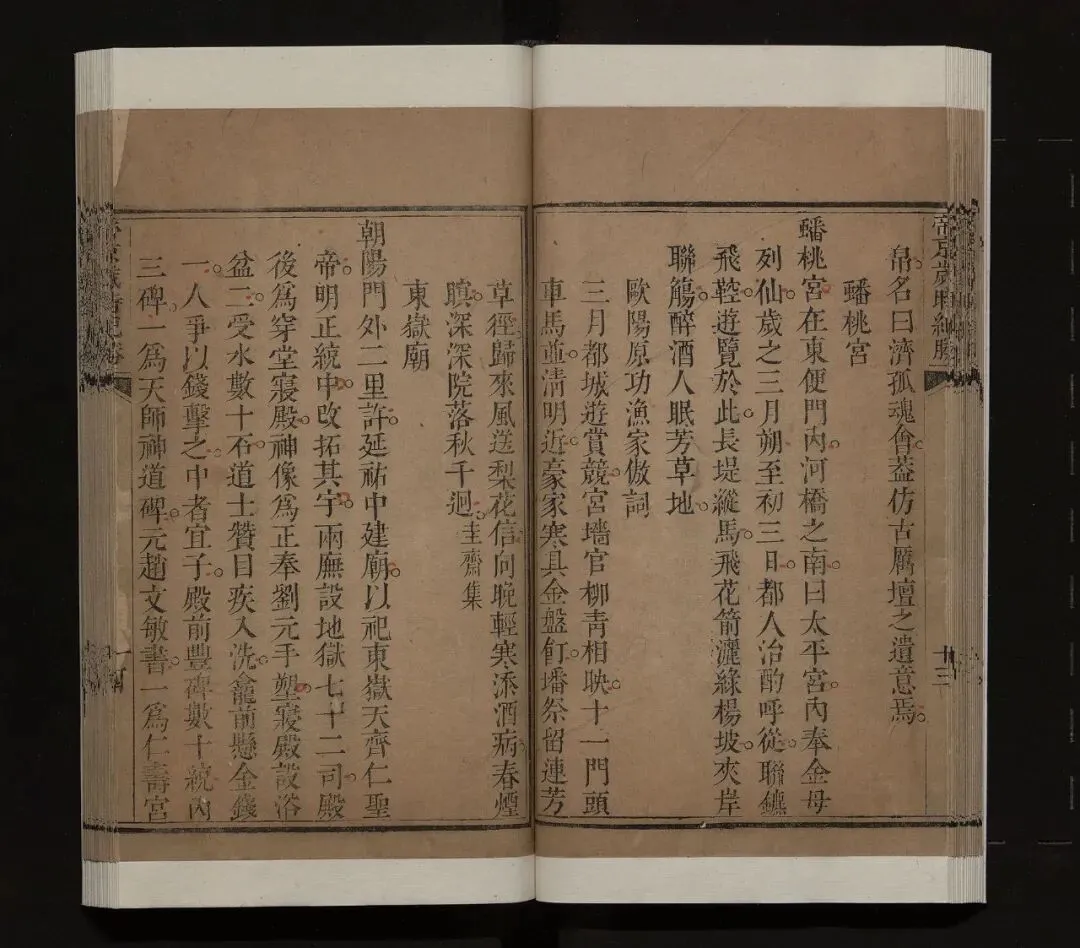 帝京歲時紀勝
十三
帛名曰濟孤魂會葢仿古厲壇之遺意焉
蟠桃宮
蟠桃宮在東便門內河橋之南曰太平宮內奉金母
列仙歲之三月朔至初三日都人治酌呼從聯鑣
飛鞚遊覽於此長堤縱馬飛花箭灑綠楊坡夾岸
聯觴醉酒人眠芳草地
歐陽原功漁家傲詞
三月都城遊賞競宮墻官柳青相映十一門頭
車馬並清明近豪家寒具金盤飣墦祭留連芳
草徑歸來風送梨花信向晚輕寒添酒病春煙
暝深深院落秋千迥圭齋集
東嶽廟
朝陽門外二里許延祐中建廟以祀東嶽天齊仁聖
帝明正統中改拓其宇兩廡設地獄七十二司殿
後爲穿堂寢殿神像爲正奉劉元手塑寢殿設浴
盆二受水數十石道士贊目疾入洗龕前懸金錢
一人爭以錢擊之中者宜子殿前豐碑數十統內
三碑一爲天師神道碑元趙文敏書一爲仁壽宮